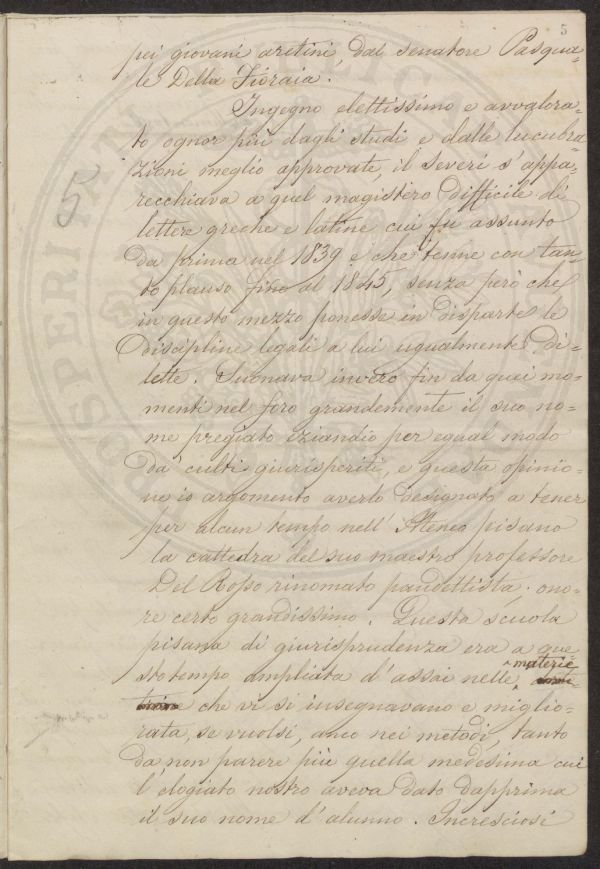 5
pei giovani aretini dal Senatore Pasqua=
le Della Fioraia.
Ingegno elettissimo e avvalora=
to ognor più dagli studi e dalle lucubra
zioni meglio approvate, il Severi s'appa=
recchiava a quel magistero difficile di
lettere greche e latine cui fu assunto
da prima nel 1839 e che tenne con tan=
to plauso fino al 1845, senza però che
in questo mezzo ponesse in disparte le
discipline legali a lui ugualmente di=
lette. Suonava invero fin da quei mo=
menti nel foro grandemente il suo no=
me pregiato eziandio per egual modo
da' culti giurisperiti, e questa opinio=
ne io argomento averlo designato a tener
per alcun tempo nell' Ateneo pisano
la cattedra del suo maestro professore
Del Rosso rinomato pandettista. ono=
re certo grandissimo. Questa scuola
pisana di giurisprudenza era a que
sto tempo ampliata d'assai nelle materie
che vi si insegnavano e miglio=
rata, se vuolsi, anco nei metodi, tanto
da non parere più quella medesima cui
l'elogiato nostro aveva dato dapprima
il suo nome d'alunno. Incresciosi
5
PROSPERI